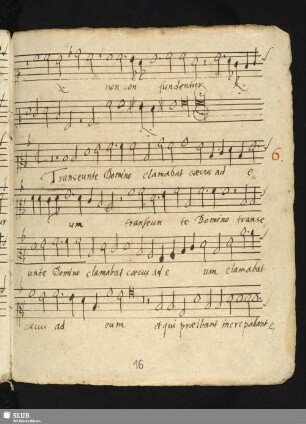 non con fundentur
6.
Transeunte Domino clamabat cæcus ad e
um transeun te Domino transe
unte Domino clamabat cæcus ad e um clamabat
cæcus ad eum et qui præibant increpabant e
16
SLUB